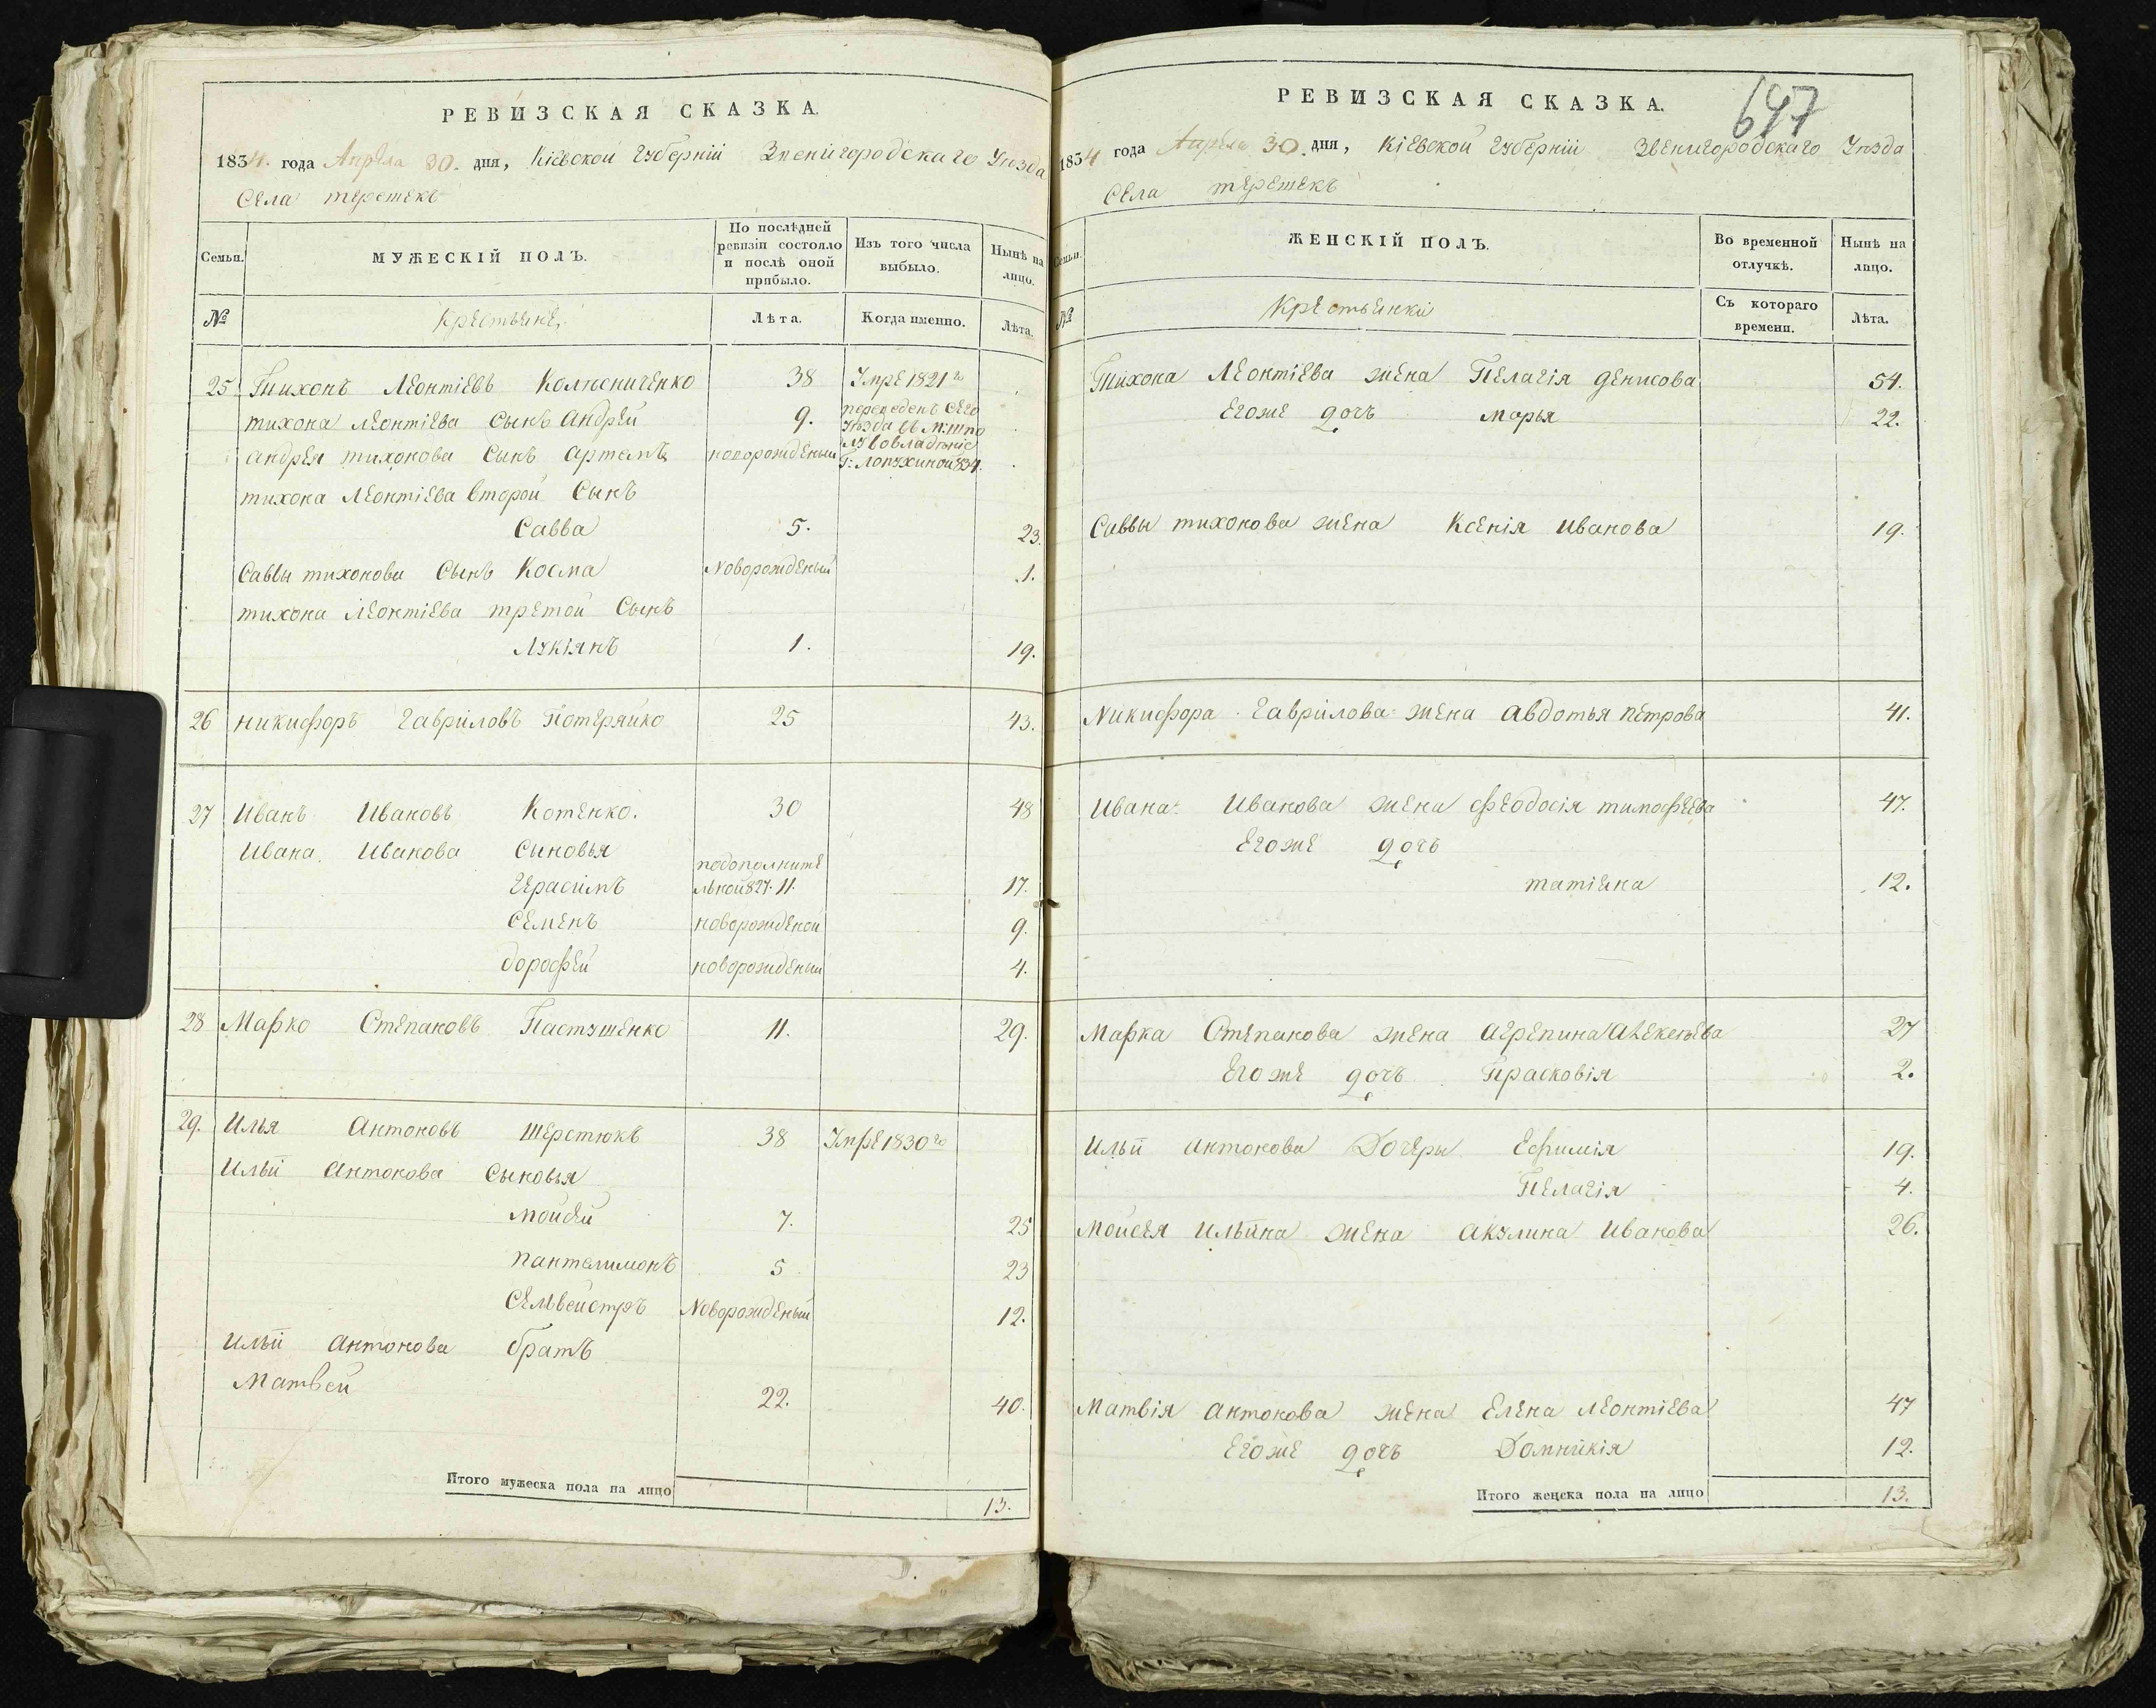 РЕВИЗСКАЯ СКАЗКА.
1834. года Апреля 30. дня, Кіевской губерніи Звенигородскаго Уезда
Села терешекъ
Семьи.
МУЖЕСКІЙ ПОЛЪ.
По послѣдней ревизіи состояло и послѣ оной прибыло.
Изъ того числа выбыло.
Нынѣ на лицо.
№
Крестьяне.
Лѣта.
Когда именно.
Лѣта.
25 Тихонъ Леонтіевъ Колесниченко 38 Умре 1821го
тихона Леонтіева Сынъ андрей 9. переведенъ Сего
Уезда въ
андрея тихонова Сынъ артемъ новорожденый во владѣніе
Г: Лопухиной 834.
тихона Леонтіева второй Сынъ
Савва 5. 23.
Саввы тихонова Сынъ Косма Новорожденый 1.
тихона Леонтіева третой Сынъ
Лукіянъ 1. 19.
26 никифоръ гавриловъ Потеряйко 25 43.
27 Иванъ Ивановъ Котенко. 30 48
Ивана Иванова Сыновья
подополните
Герасимъ льной 827. 11. 17.
Семенъ новорожденой 9.
дорофей новорожденый 4.
28 Марко Степановъ Пастушенко 11. 29.
29. Илья Антоновъ Шерстюкъ 38 Умре 1830го
Ильи Антонова Сыновья
Мойсей 7. 25
Панталимонъ 5 23
Сельвейстръ Новорожденый 12.
Ильи Антонова братъ
Матвей 22. 40.
Итого мужеска пола на лицо 13.
РЕВИЗСКАЯ СКАЗКА.
647
1834 года Апреля 30. дня, Кіевской губерніи Звенигородскаго Уезда
Села терешекъ
Семьи.
ЖЕНСКІЙ ПОЛЪ.
Во временной отлучкѣ.
Нынѣ на лицо.
№
Крестьянки
Съ котораго времени.
Лѣта.
Тихона Леонтіева жена Пелагія денисова 54.
Егоже дочь Марья 22.
Саввы тихонова жена Ксенія Иванова 19.
Никифора гаврилова жена авдотья Петрова 41.
Ивана Иванова жена феодосія тимофеева 47.
Егоже дочь
татіяна 12.
Марка Степанова жена агрепина алексеева 27
Егоже дочь Прасковія 2.
Ильи антонова Дочеры Ефимія 19.
Пелагія 4.
Мойсея Ильина жена акулина Иванова 26.
Матвія антонова жена Елена Леонтіева 47
Егоже дочь Домникія 12.
Итого женска пола на лицо 13.